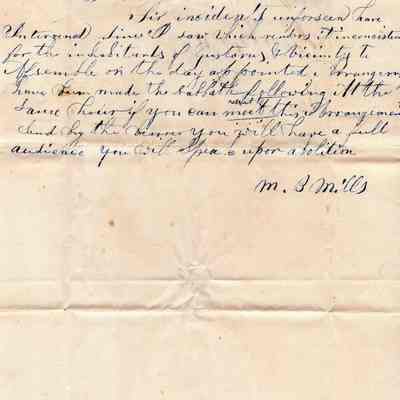 Sir incidents unforseen have
Intervened since I saw which renders it inconsistent
for the inhabitants of Gustavus & Vicinity to
Assemble on the day appointed arrangem
have been made the Sabbath following itt the
Same hour if you can meet this Arrangemen
send by the bearer you will have a full
audience you will Speak upon abolition
M. B Mills